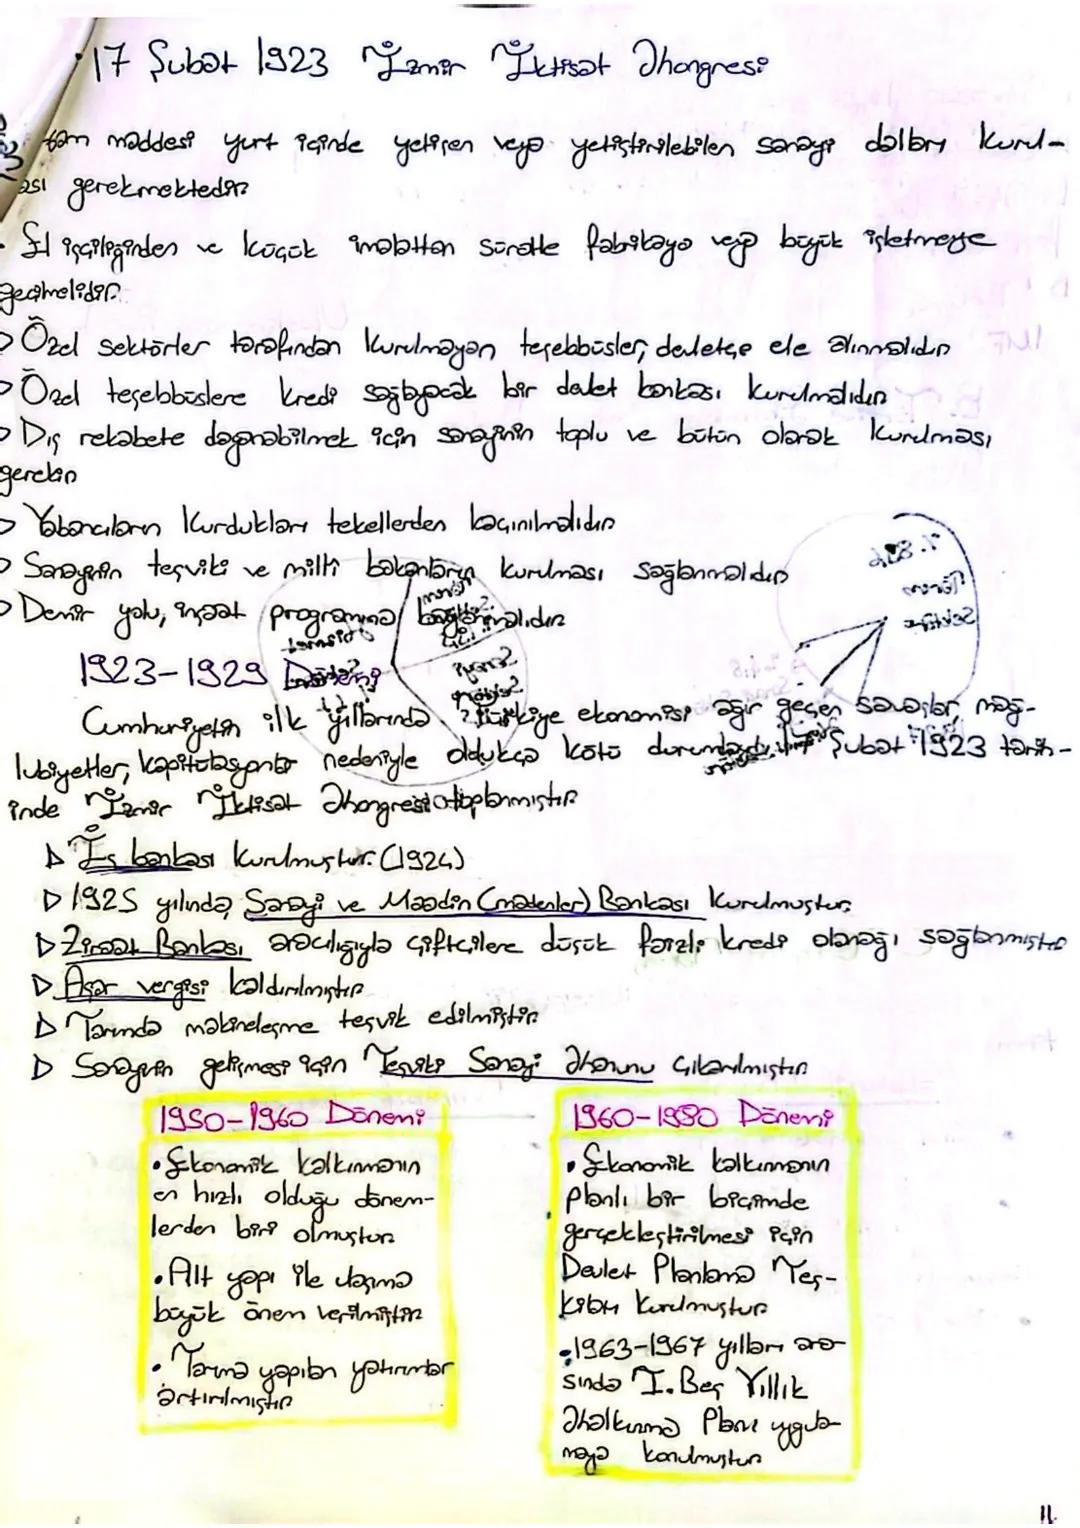 17 Şubat 1923 İzmir İktisat Kongresi
ham maddesi yurt içinde yetişen veya yetiştirilebilen sanayi dalları kurul-
ası gerekmektedir
El işçiliğinden ve küçük imalattan süratle fabrikaya veya büyük işletmeye
geçilmelidir.
Özel sektörler tarafından kurulmayan teşebbüsler, devletçe ele alınmalıdır
Özel teşebbüslere kredi sağlayacak bir devlet bankası kurulmalıdır
Dış rekabete dayanabilmek için sanayinin toplu ve bütün olarak kurulması
gerekir
Yabancıların kurdukları tekellerden kaçınılmalıdır
Sanayinin teşviki ve milli bakanların kurulması sağlanmalıdır
Demir yolu, inşaat programına bağlanmalıdır
1923-1929 Dönemi
Cumhuriyetin ilk yıllarında Türkiye ekonomisi ağır geçen savaşlar, mağ-
lubiyetler, kapitülasyonlar nedeniyle oldukça kötü durumdaydı. 17 Şubat 1923 tarih-
inde İzmir İktisat Kongresi toplanmıştır
İş bankası kurulmuştur. (1924)
1925 yılında, Sanayi ve Maadin (madenler) Bankası kurulmuştur
Ziraat Bankası aracılığıyla çiftçilere düşük faizli kredi olanağı sağlanmıştır
Aşar vergisi kaldırılmıştır
Tarımda makineleşme teşvik edilmiştir
Sanayinin gelişmesi için Teşviki Sanayi Kanunu çıkarılmıştır
1950-1960 Dönemi
• Ekonomik kalkınmanın
en hızlı olduğu dönem-
lerden biri olmuştur
• Alt yapı ile ulaşıma
büyük önem verilmiştir
• Tarıma yapılan yatırımlar
artırılmıştır
1960-1980 Dönemi
• Ekonomik kalkınmanın
planlı bir biçimde
gerçekleştirilmesi için
Devlet Planlama Teş-
kilatı kurulmuştur
• 1963-1967 yılları ara-
sında I. Beş Yıllık
Kalkınma Planı uygula-
maya konulmuştur
11